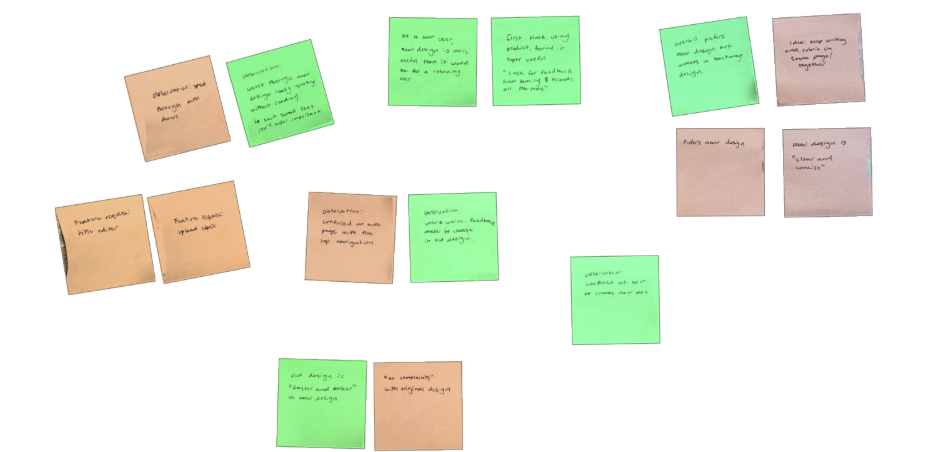 observation: sped
through with
observation:
went through new
design really quickly
without reading
as a new user,
new design is more
useful than it would
be for a returning
user
first time using
product, found it
super useful
"I ask for feedback
from family & friends
all the time"
overall prefers
new design but
wants a halfway
design
idea: keep writing
and rubric on
same page/
together
Prefers new design
new design is
"clear and
concise"
Feature request:
title editor
Feature request:
upload rubric
observation:
confused on auth
page with the
top navigation
observation
unsure which feedback
mode to choose
in old design.
observation:
confused at how
to create new doc
old design is
"faster and easier"
vs new design
"no complaints"
with original design